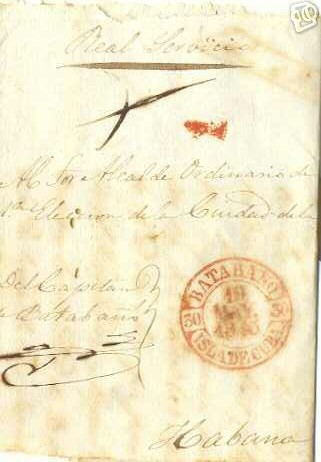 Real Servicio
Al Sor Alcalde Ordinario de
1ª Eleccion de la Ciudad de la
Del Capitan
Batabanó
BATABANO
18
30 30
ISLA DE CUBA
Habana